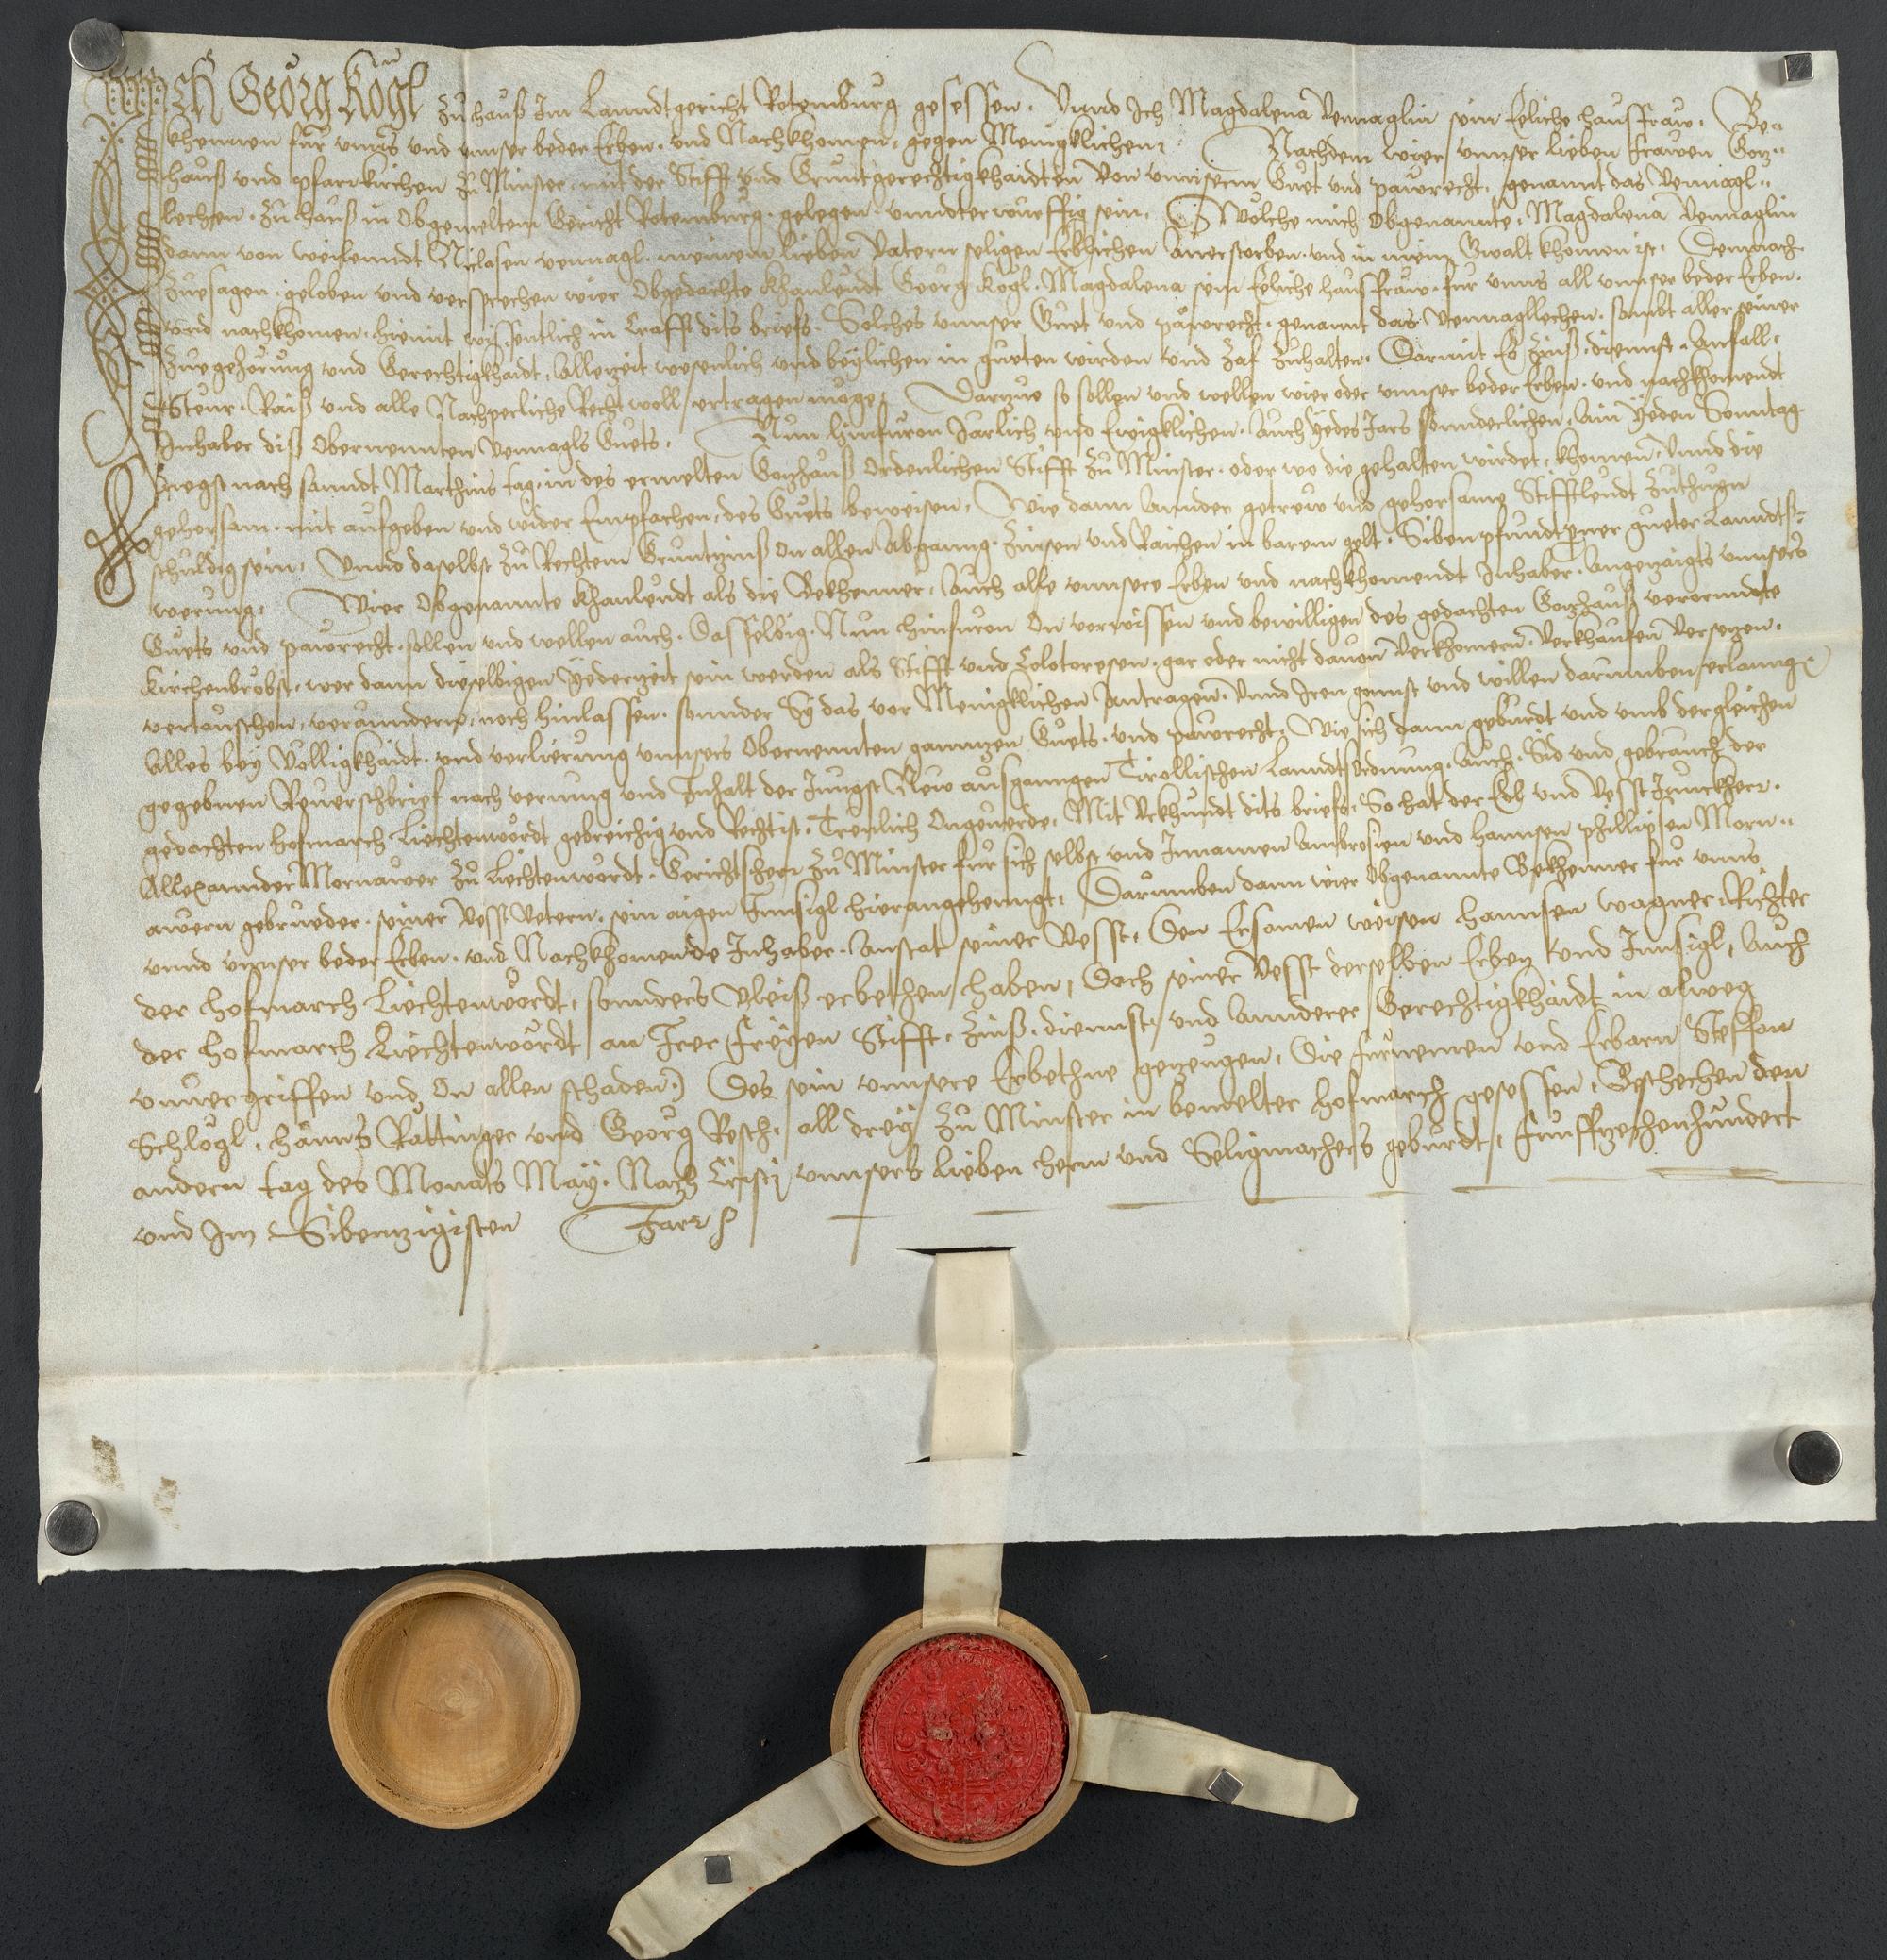 Ich Georg Kögl zu hauß Im Lanndtgericht Rotemburg gesessen. Vnnd Ich Magdalena Vennaglin sein Eeliche hausfraw. Be=
khennen für vnns vnd vnnser beder Erben. vnd Nachkhomen, gegen Menigklichen, Nachdem wier vnnser lieben frawen Goz=
hauß vnd pfarrkirchen zu Minster. mit der Stifft vnd Gruntgerechtigkhaidten Von vnnserm Guet vnd pawrecht. genannt das Vennagl=
lechen. zu hauß in Obgemeltem Gericht Rotemburg. gelegen. vnndterwürffig sein, Wölche mich Obgenannte, Magdalena Vennaglin
dann von weilenndt Niclasen vennagl. meinem lieben Vatern seligen Erblichen anerstorben. vnd in mein Gwalt khomen ist. Demnach
zuesagen, geloben vnd versprechen wier Obgedachte khonleudt Georg Kögl. Magdalena sein Eeliche hausfraw. für vnns all vnnser beder Erben.
vnd nachkhomen. hiemit wissentlich in Crafft dits briefs. Solches vnnser Guet vnd pawrecht. genannt das Vennagllechen. sambt aller seiner
Zuegehörung vnd Gerechtigkhaidt, Allezeit wesenlich vnd beÿlichen in gueten wirden vnd Zaf zuhalten. Damit Es Zinß. diennst. Anfall,
Steur. Raiß vnd alle Nachperliche Recht woll ertragen möge, Darzue so sollen vnd wellen wier oder vnnser beder Erben. vnd nachkhomendt
Inhaber diß Obernennten Vennagls Guets. Nun hinfüron Järlich vnd Ewigklichen. Auch Yedes Jars sonnderlichen, Am Yeden Sonntag.
negst nach sannd Marthins tag, in des ermelten Gozhauß Ordenlichen Stifft zu Minster. oder wo die gehalten wirdet, khomen, Vnnd die
gehorsam. mit aufgeben vnd wider Empfachen, des Guets beweisen, Wie dann Annder getrew vnd gehorsame Stifftleudt zuthuen
schuldig sein, Vnnd daselbst zu Rechtem Gruntzinß On allen Abganng. Zinsen vnd Raichen in barem gelt. Siben pfundt Perner gueter Lanndts=
werung, Wier Obgenannte khonleudt als die Bekhenner, Auch alle vnnsere Erben vnd nachkhomendt Inhaber. Angezaigts vnnsers
Guets vnd pawrecht. sollen vnd wellen auch. Dasselbig. Nun hinfüron On vorwissen vnd bewilligen des gedachten Gozhauß verorndte
Kirchenbröbst, wer dann dieselbigen Yederzeit sein werden als Stifft vnd Colotoresen. gar oder nicht dauon Verkhomern. Verkhauffen Versezen.
vertauschen, verenndern, noch hinlassen. sonnder Sÿ das vor Menigklichen Antragen. Vnnd Iren gunst vnd willen darumben erlanng.
Alles beÿ Völligkhaidt. vnd verlierung vnnsers Obernennten gannzen Guets. vnd pawrecht. Wie sich dann gebürdt vnd vmb dergleichen
gegebnen Reuerschbrief nach vermug vnd Inhalt der Jüngst New aufganngen Tirollischen Lanndtsordnung. Auch. Sid vnd gebrauch der
gedachten hofmarch Liechtenwördt gebreichig vnd Recht ist. Trewlich Ongeuerde, Mit Vrkhundt dits briefs. So hat der Edl vnd Vesst Junckherr.
Allexannder Mornawer zu Liechtenwördt. Gerichtsherr zu Minster für sich selbst vnd Innamen Ambrosien vnd hannsen phillipsen Morn=
awern gebrueder. seiner Vesst Vetern. sein aigen Innsigl hierangehenngt, Darumben dann wier Obgenannte Bekhenner für vnns
vnnd vnnser beder Erben. vnd Nachkhomende Inhaber. Anstat seiner Vesst, Den Ersamen weisen hannsen wagner. Richter
der hofmarch Liechtenwördt, sonnders Vleiß erbethen haben, Doch seiner Vesst derselben Erben vnd Innsigl, Auch
der hofmarch Liechtenwördt an Irer freÿen Stifft. Zinß. diennst. vnd Annderer Gerechtigkhaidt in alweg
vnuergriffen vnd On allen schaden.) Des sein vnnsere Erbethne gezeugen, Die fürnemen vnd Erbarn Steffan
Schlögl, Hanns Rattinger vnd Georg Resch. all dreÿ zu Minster in bemelter hofmarch gesessen, Beschechen den
andern tag des Monats Maÿ. Nach Cristi vnnsers lieben herrn vnd Seligmachers geburdt, funffzechenhundert
vnd Im Sibenzigisten Jar